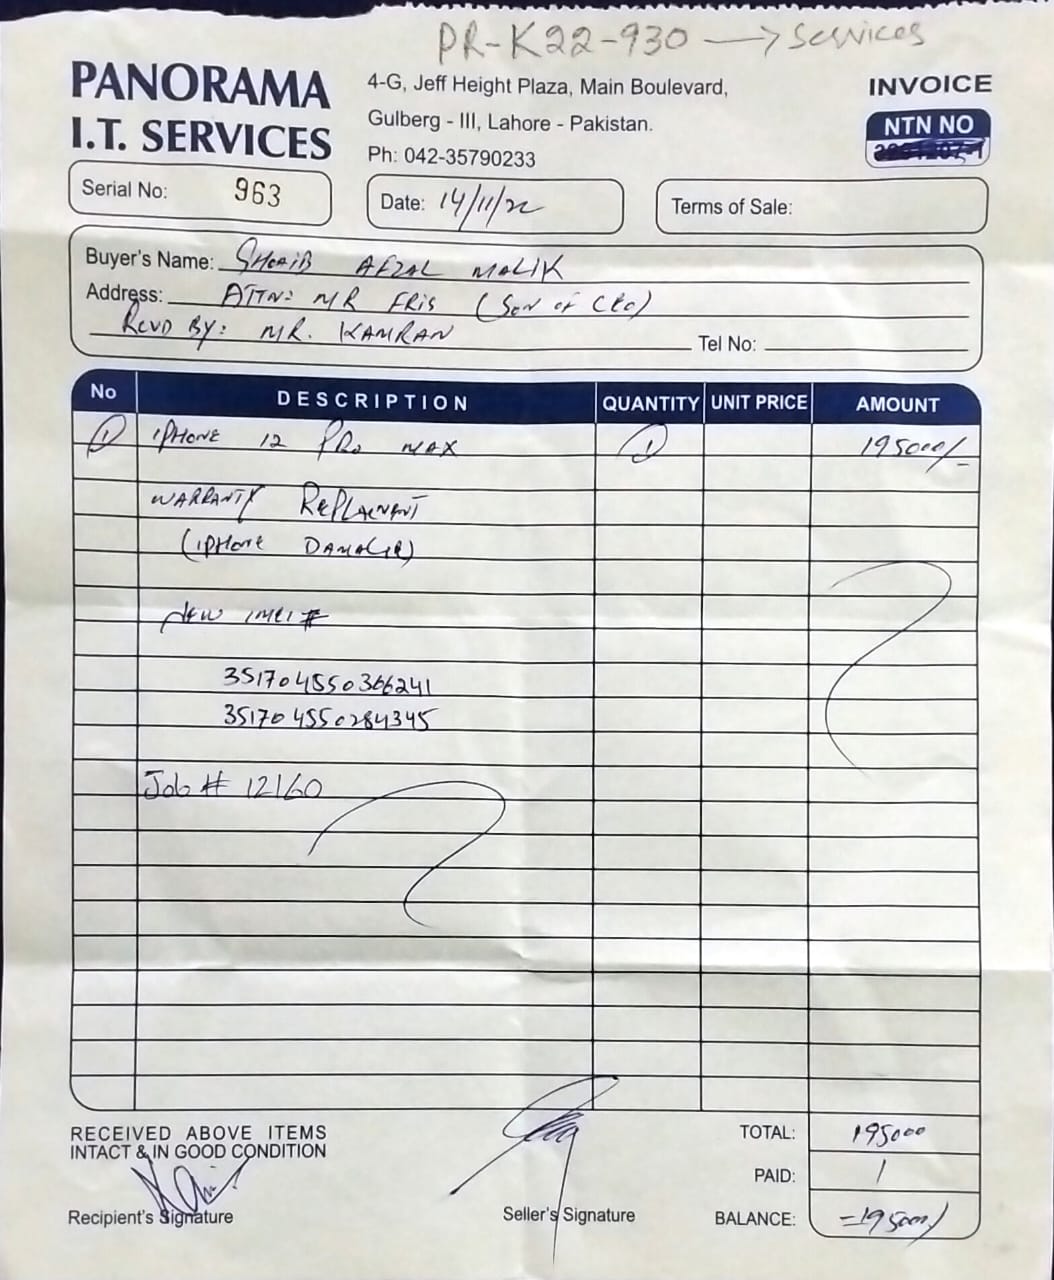 PR-K22-930 → Services
PANORAMA
I.T. SERVICES
4-G, Jeff Height Plaza, Main Boulevard,
Gulberg - III, Lahore - Pakistan.
Ph: 042-35790233
INVOICE
NTN NO
Serial No: 963
Date: 14/11/22
Terms of Sale:
Buyer's Name: SHOAIB AFZAL MALIK
Address: ATTN: MR FRIS (Son of CEO)
RCVD BY: MR. KAMRAN
Tel No:
No DESCRIPTION QUANTITY UNIT PRICE AMOUNT
1 IPHONE 12 PRO MAX 1 195000/-
WARRANTY REPLACMENT
(IPHONE DAMAGE)
NEW IMEI #
351704550366241
351704550284345
Job # 12160
RECEIVED ABOVE ITEMS
INTACT & IN GOOD CONDITION
Recipient's Signature
Seller's Signature
TOTAL: 195000
PAID: /
BALANCE: =195000/